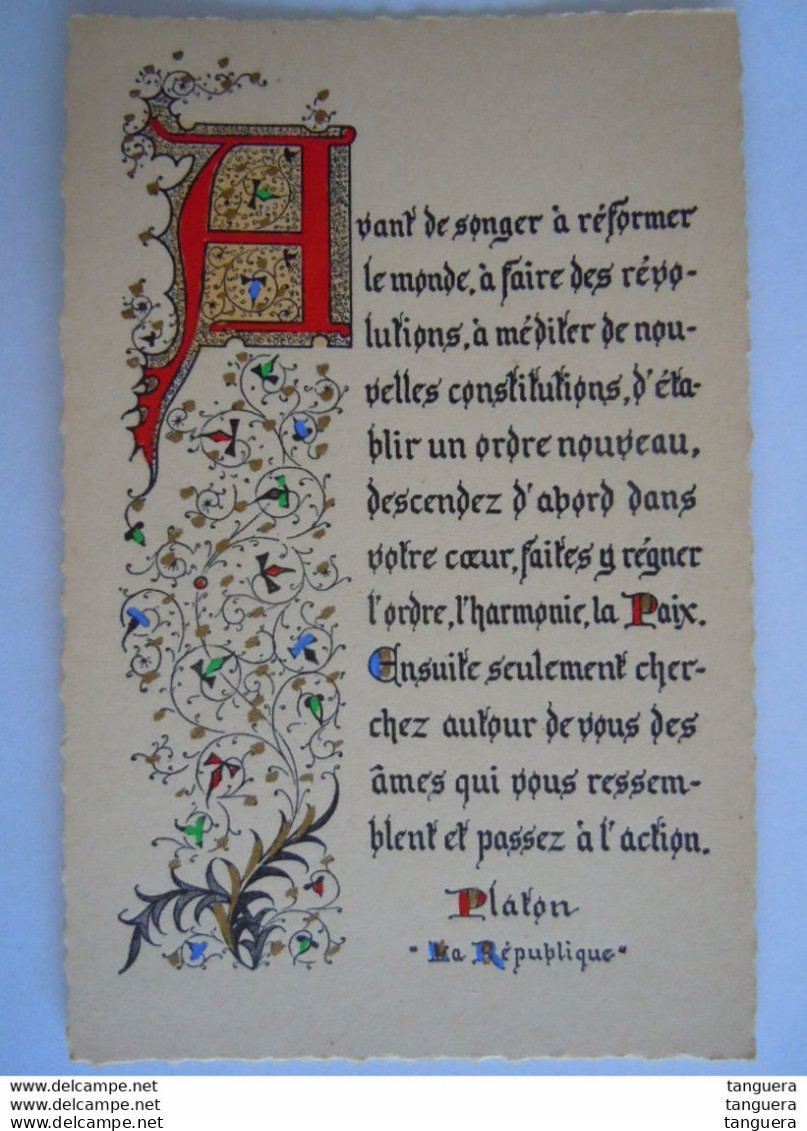 Avant de songer à réformer
le monde, à faire des révo-
lutions, à méditer de nou-
velles constitutions, d'éta-
blir un ordre nouveau,
descendez d'abord dans
votre cœur, faites y régner
l'ordre, l'harmonie, la Paix.
Ensuite seulement cher-
chez autour de vous des
âmes qui vous ressem-
blent et passez à l'action.
Platon
"La République"
www.delcampe.net
www.delcampe.net
www.delcampe.net
tanguera
tanguera
tanguera